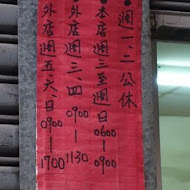 ●週一、二公休
●本店週三至週日0600-0900
外店週三、四0900-1130
外店週五、六、日0900-1700